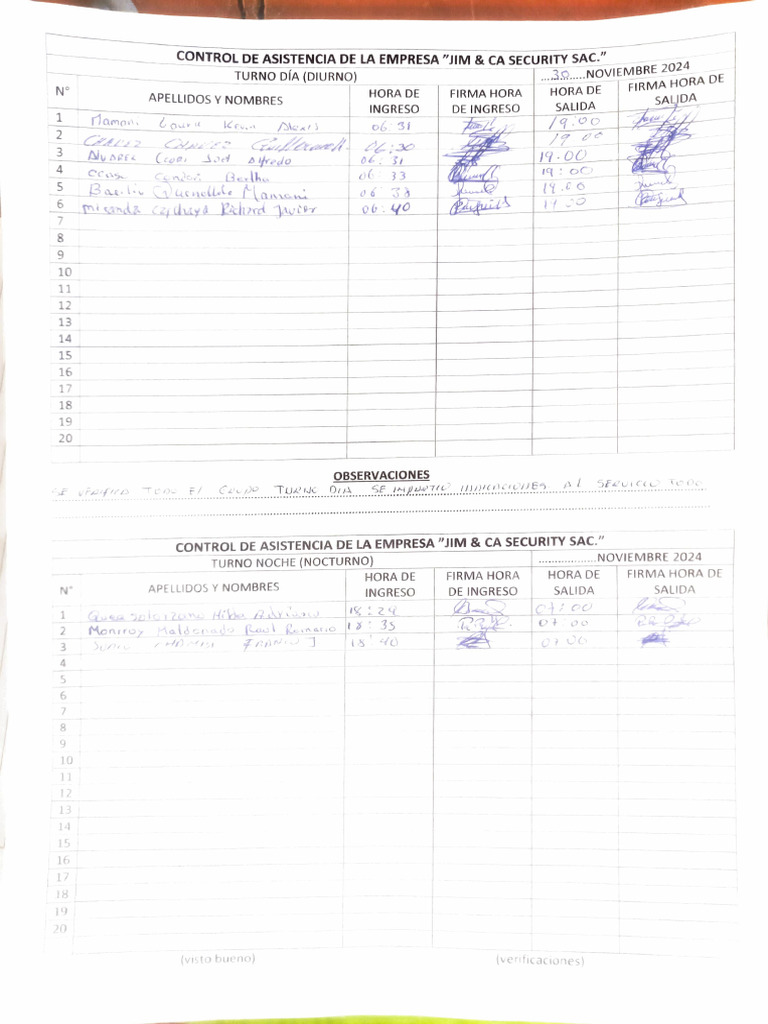 CONTROL DE ASISTENCIA DE LA EMPRESA "JIM & CA SECURITY SAC."
TURNO DÍA (DIURNO) ...30.....NOVIEMBRE 2024
N° APELLIDOS Y NOMBRES HORA DE INGRESO FIRMA HORA DE INGRESO HORA DE SALIDA FIRMA HORA DE SALIDA
1 Mamani Kevin Alexis 06:31 19:00
2 CHAVEZ 06:30 19 00
3 Alvarez Alfredo 06:31 19:00
4 Ccusi Condori Bertha 06:33 19:00
5 Basilio Mamani 06 38 19.00
6 Miranda Richard Javier 06:40 19:00
7
8
9
10
11
12
13
14
15
16
17
18
19
20
OBSERVACIONES
SE VERIFICA TODO El TURNO DIA SE INDICACIONES Al SERVICIO TODO
CONTROL DE ASISTENCIA DE LA EMPRESA "JIM & CA SECURITY SAC."
TURNO NOCHE (NOCTURNO) .................NOVIEMBRE 2024
N° APELLIDOS Y NOMBRES HORA DE INGRESO FIRMA HORA DE INGRESO HORA DE SALIDA FIRMA HORA DE SALIDA
1 Solorzano 18:29 07:00
2 Monrroy Maldonado Raul Romario 18:35 07:00
3 18:40 07:00
4
5
6
7
8
9
10
11
12
13
14
15
16
17
18
19
20
(visto bueno) (verificaciones)